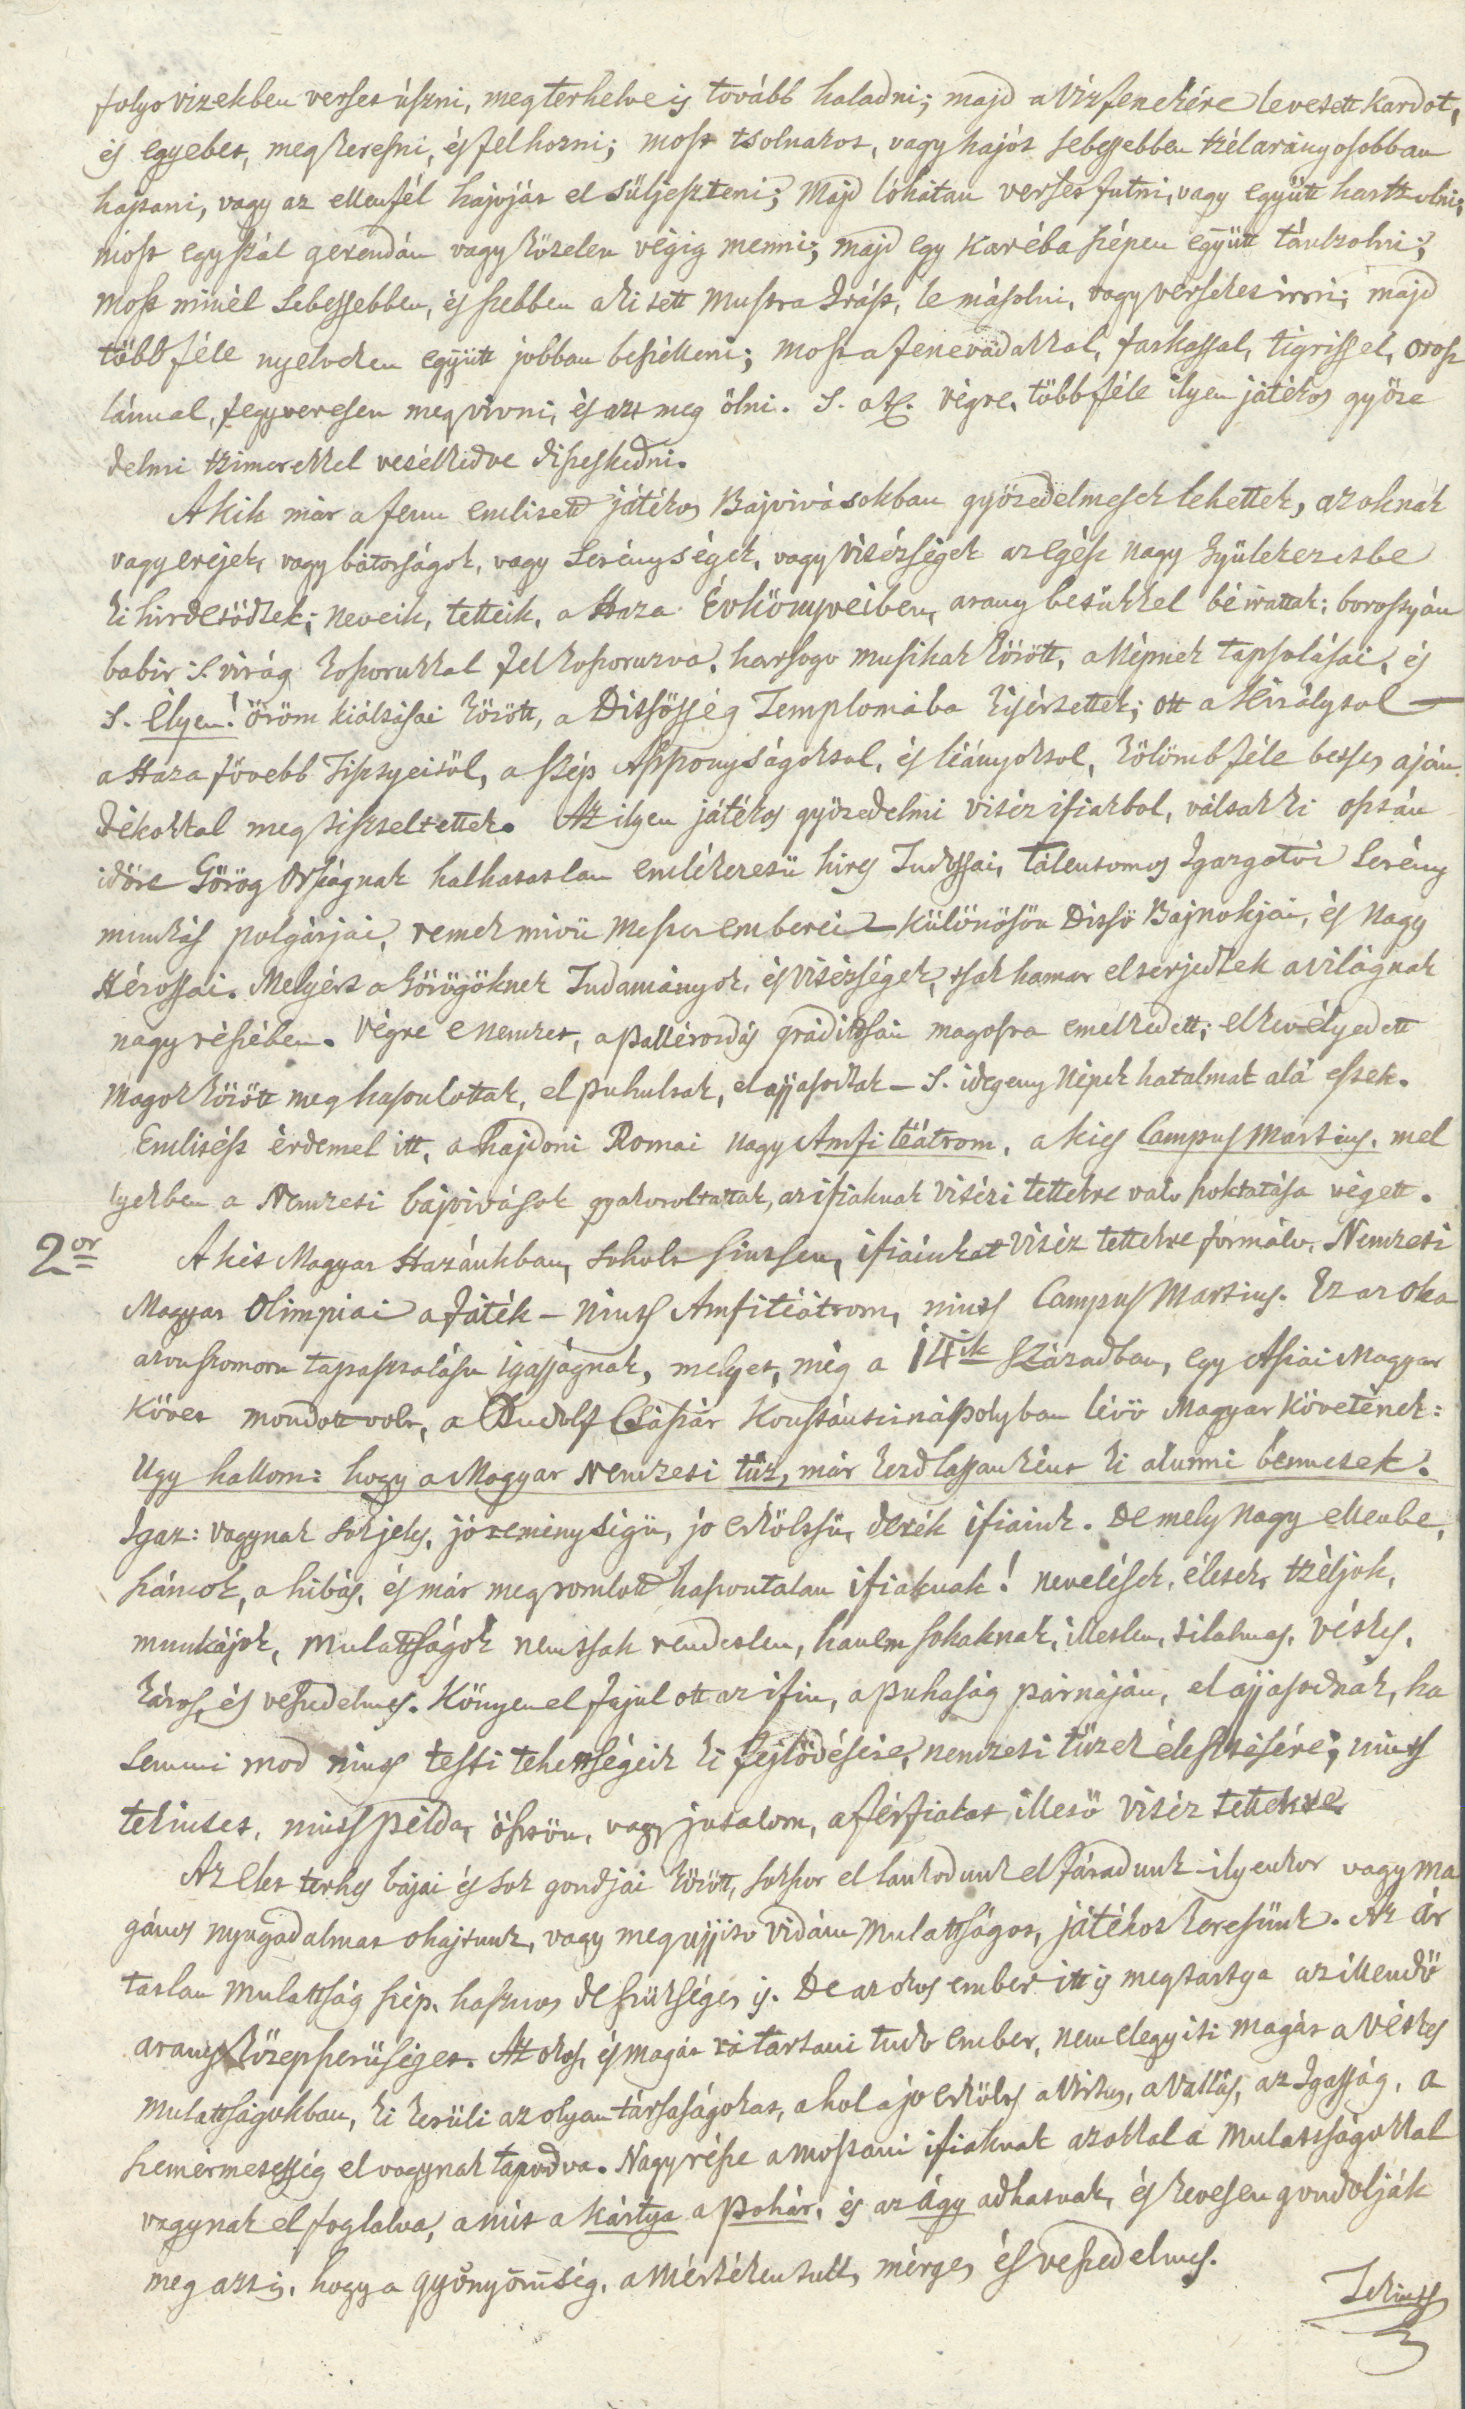 folyo vizekben verset úszni, meg terhelve is tovább haladni; majd a víz fenekére levetett kardot,
és egyebet, meg keresni, és fel hozni; most tsolnakot, vagy hajót sebessebben tzélarányosobban
hajtani, vagy az ellenfél hajóját el süljeszteni; majd lóhátan verset futni, vagy együtt hartzolni;
most egy szál gerendán vagy kötelen végig menni; majd egy karéba szépen együtt tántzolni;
most minél sebessebben, és szebben a ki tett mustra Irást, le másolni, vagy verseket irni; majd
több féle nyelveken együtt jobban beszélleni; most a fenevadakkal, farkassal, tigrissel, orosz
lánnal, fegyveresen meg vivni, és azt meg ölni. S. a. t. végre, több féle ilyen játékos győze
delmi tzimerekkel vetélkedve diszeskedni.
Akik már a fenn emlitett játékos Bajvivásokban győzedelmesek lehettek, azoknak
vagy erejek, vagy bátorságok, vagy serénységek, vagy vitézségek az egész nagy Gyülekezetbe
ki hirdetődtek; neveik, tetteik, a Haza Évkönyveiben, arany betükkel bé irattak; borostyán
babér S. virág koszorukkal fel koszoruzva, harsogo musikak között, a Népnek tapsolásai, és
S. élyen! öröm kiáltásai között, a Ditsősség Templomába kisértettek; ott a Királytol —
a Haza fővebb Tisztyeitöl, a szép Asszonyságoktol, és leányoktol, kölömbféle betses aján
dékokkal meg tiszteltettek. Az ilyen játékos győzedelmi vitéz ifiakbol, váltak ki osztán
időre Görög Országnak halhatatlan emlékezetü hires Tudossai, talentomos Igazgatói serény
munkás polgárjai, remek mivü mester emberei — különösön Ditső Bajnokjai, és Nagy
Hérossai. Melyért a Görögöknek Tudományok, és vitézségek, tsak hamar el terjedtek a világnak
nagy részében. Végre e nemzet, a pallérozás gráditsán magosra emelkedett; elkevélyedett
Magok között meg hasonlottak, el puhultak, el ajjasodtak — S. idegeny Népek hatalmak alá estek.
Emlitést érdemel itt, a hajdoni Romai nagy Amfi téátrom, a kies Campus Martius, mel
lyekben a Nemzeti bajvivások gyakoroltattak, az ifiaknak vitézi tettekre valo szoktatása végett.
2or A kis Magyar Hazánkban, soholt sintsen, ifiainkat vitéz tettekre formálo, Nemzeti
Magyar Olimpiai a Játék — nints Amfitéátrom, nints Campus Martius. Ez az oka
azon szomoru tapasztalásu igasságnak, melyet, még a 14ik században, egy Asiai Magyar
követ mondott volt, a Rudolf Császár Konstántinápolyban lévő Magyar követének:
Ugy hallom: hogy a Magyar Nemzeti tüz, már kezd lassanként ki alunni bennetek.
Igaz: vagynak sok jeles, jó reménységü, jo erkölcsü, derék ifiaink. De mely nagy ellenbe,
számok, a hibás, és már meg romlott haszontalan ifiaknak! nevelések, életek, tzéljok,
munkájok, mulattságok nemtsak rendetlen, hanem sokaknak, illetlen, tilalmas, vétkes,
káros, és veszedelmes. Könyen el fajul ott az ifiu, a puhaság párnáján, el ajjasodnak, ha
semmi mod nints testi tehettségeik ki fejlődésére, nemzeti tüzek élesztésére; nints
tekintet, nints példa, ösztön, vagy jutalom, a férfiakat illető vitéz tettekre.
Az élet terhes bajai és sok gondjai között, sokszor el lankodunk el fáradunk — ilyenkor vagy ma
gános nyugodalmat ohajtunk, vagy meg ujjito vidám mulattságot, játékot keresünk. Az ár
tatlan mulattság szép, hasznos de szükséges is. De az okos ember itt is megtartya az illendő
arany középszerüséget. Az okos, és magát rá tartani tudo ember, nem elegyiti magát a vétkes
mulattságokban, ki kerüli az olyan társaságokat, a hol a jo erkölcs a virtus, a vallás, az Igasság, a
szemérmetesség el vagynak tapodva. Nagy része a mostani ifiaknak azokkal a mulattságokkal
vagynak el foglalva, a mit a kártya a pohár, és az ágy adhatnak, és kevesen gondolják
meg azt is, hogy a gyönyörüség, a mértéken tull, mérges és veszedelmes.
Tekints